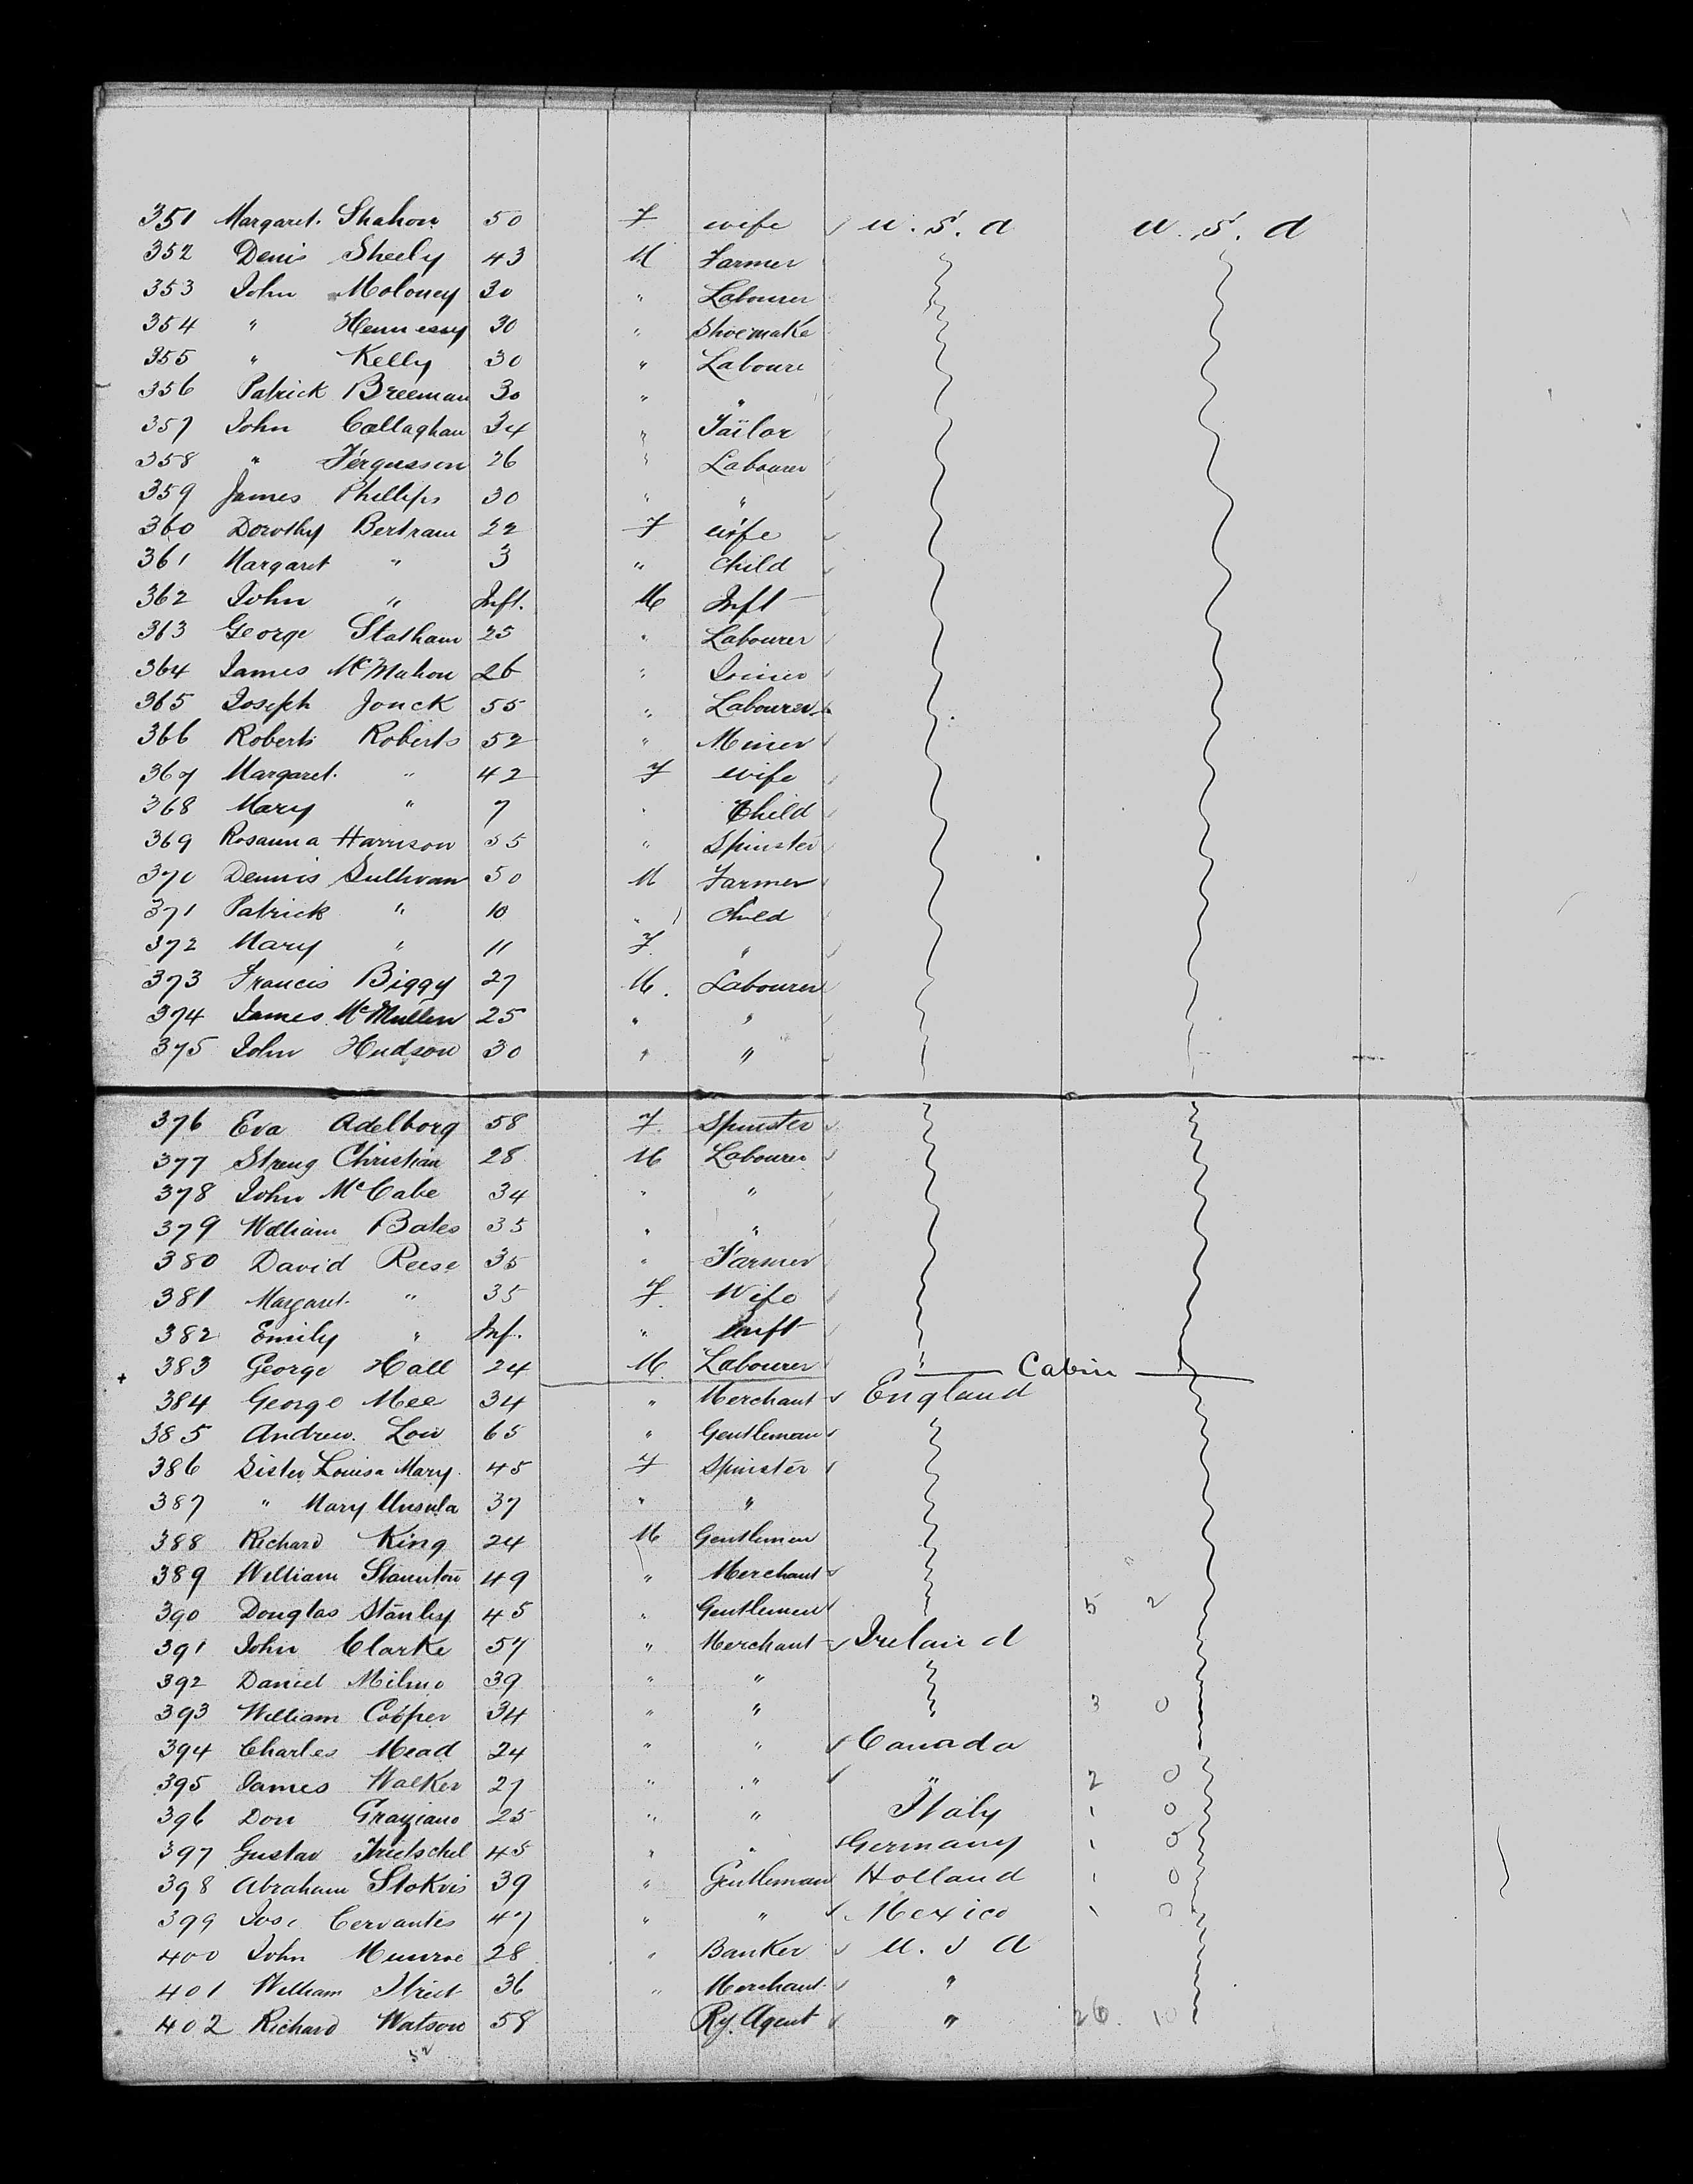 351 Margaret. Shahon 50 F wife U.S.A U.S.A
352 Denis Sheehy 43 M Farmer
353 John Moloney 30 " Labourer
354 " Hennessy 30 " Shoemake
355 " Kelly 30 " Laboure
356 Patrick Breeman 30 " "
357 John Callaghan 34 " Tailor
358 " Fergusson 26 " Labourer
359 James Phillips 30 " "
360 Dorothy Bertram 22 F wife
361 Margaret " 3 " Child
362 John " Inft. M Inft
363 George Statham 25 " Labourer
364 James McMahon 26 " Joiner
365 Joseph Jonck 55 " Labourer
366 Roberts Roberts 52 " Miner
367 Margaret. " 42 F wife
368 Mary " 7 " Child
369 Rosanna Harrison 35 " Spinster
370 Dennis Sullivan 50 M Farmer
371 Patrick " 10 " Child
372 Mary " 11 F. "
373 Francis Biggy 27 M. Labourer
374 James McMullen 25 " "
375 John Hudson 30 " "
376 Eva Adelborg 58 F. Spinster
377 Streng Christian 28 M Labourer
378 John McCabe 34 " "
379 William Bates 35 " "
380 David Reese 35 " Farmer
381 Margaret. " 35 F. Wife
382 Emily " Inf. " Inft
383 George Hall 24 M. Labourer
Cabin
384 George Mee 34 " Merchant England
385 Andrew. Low 65 " Gentleman
386 Sister Louisa Mary. 45 F Spinster
387 " Mary Ursula 37 " "
388 Richard King 24 M Gentleman
389 William Staunton 49 " Merchant
390 Douglas Stanley 45 " Gentleman 5 2
391 John Clarke 57 " Merchant Ireland
392 Daniel Milmo 39 " "
393 William Cooper 34 " " 3 0
394 Charles Mead 24 " " Canada
395 James Walker 27 " " " 2 0
396 Don Graziano 25 " " Italy 1 0
397 Gustav Trietschel 45 " " Germany 1 0
398 Abraham Stokvis 39 " Gentleman Holland 1 0
399 Jose Cervantes 47 " " Mexico 1 0
400 John Munroe 28 " Banker U.S A
401 William Street 36 " Merchant. "
402 Richard Watson 58 Ry. Agent " 26. 10